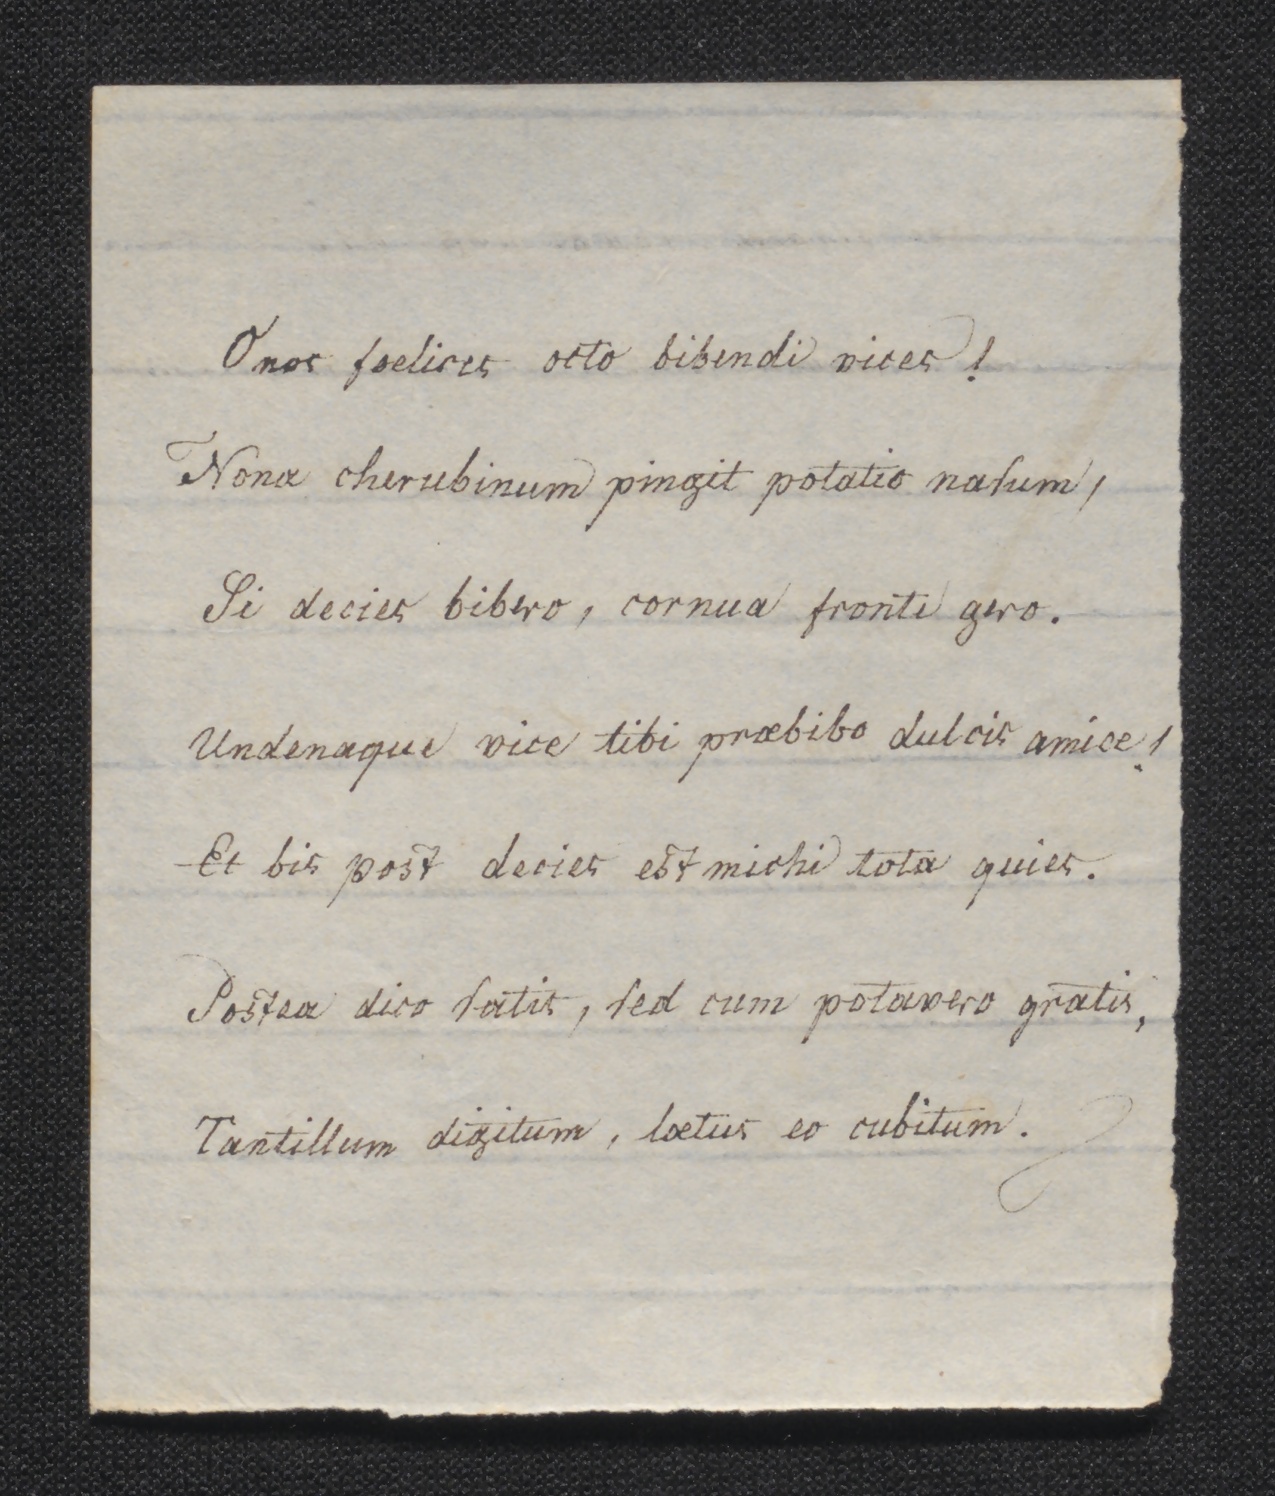 O nos foelices octo bibendi vices!
Nona cherubinum pingit potatio naſum,
Si decies bibero, cornua fronti gero.
Undenaque vice tibi præbibo dulcis amice!
Et bis post decies est michi tota quies.
Postea dico ſatis, ſed cum potavero gratis,
Tantillum digitum, lætus eo cubitum.